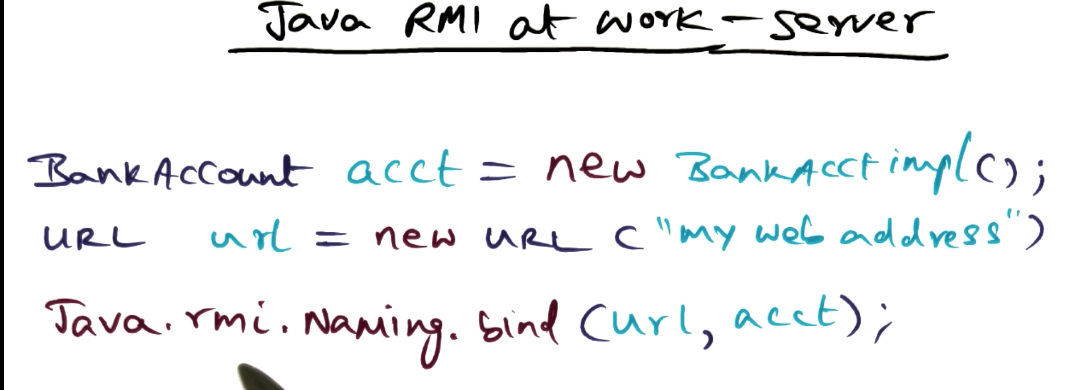 Java RMI at work - server
BankAccount acct = new BankAcctimpl();
URL url = new URL ("my web address")
Java.rmi.Naming.bind (url, acct);